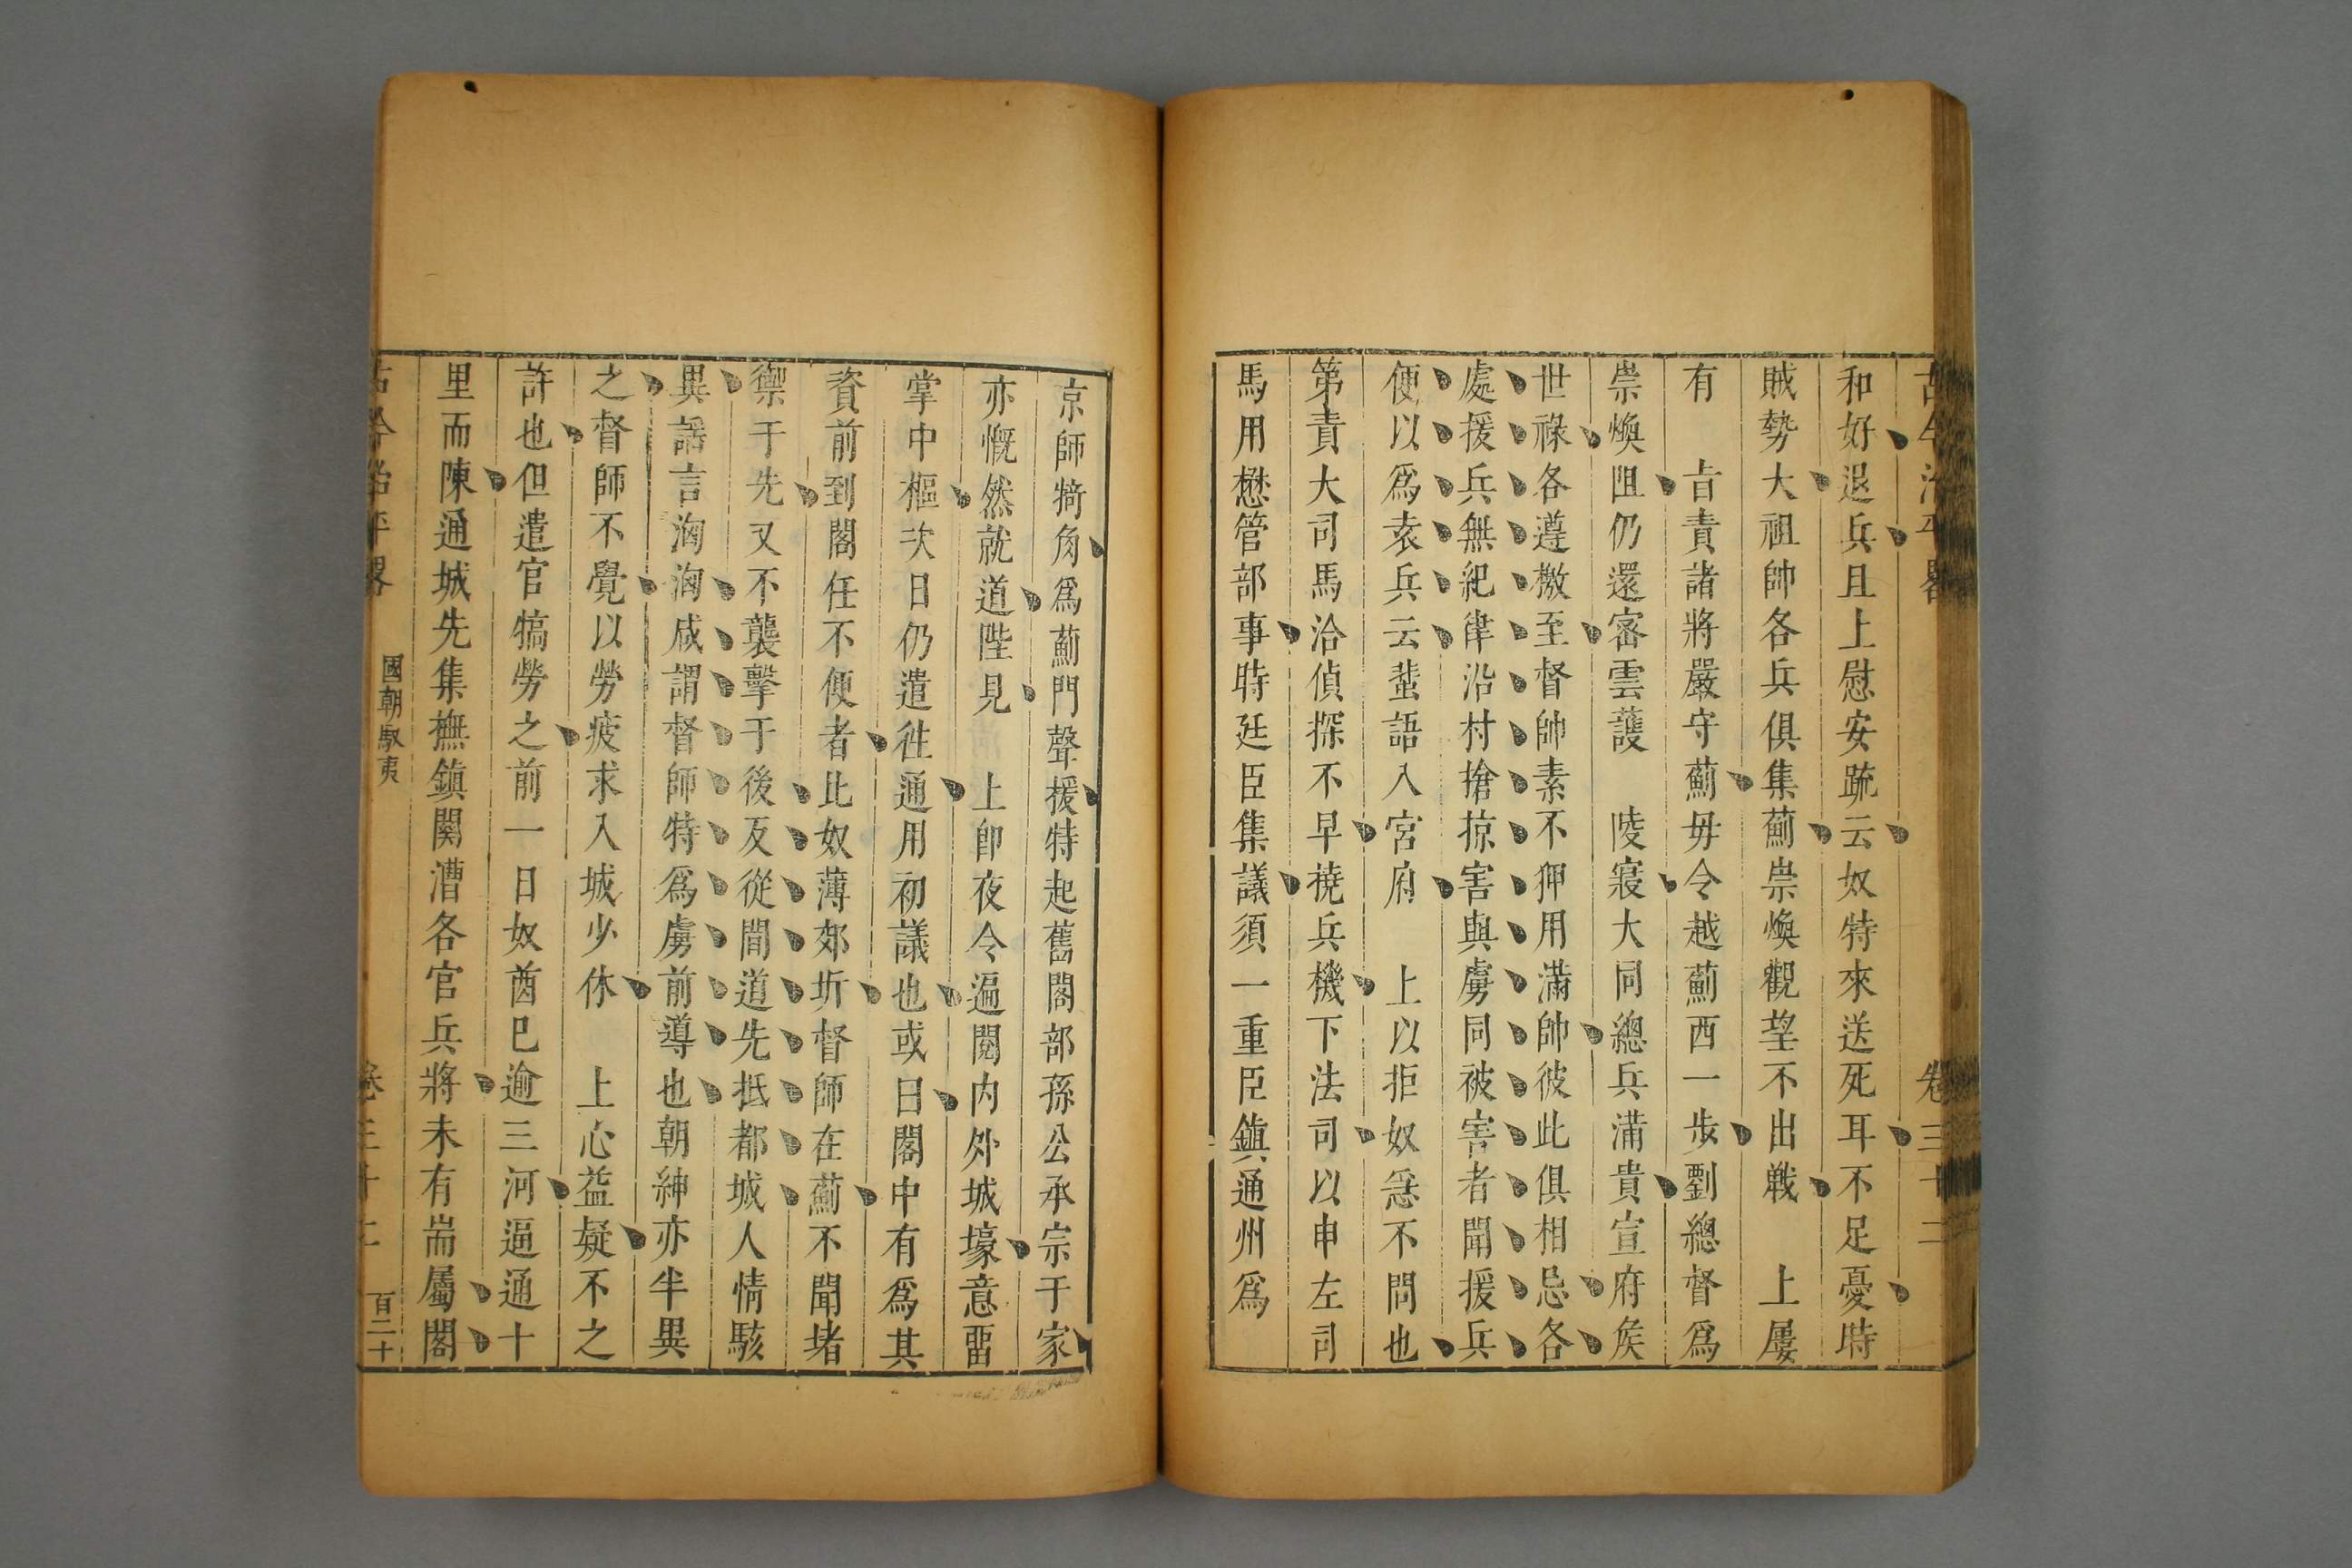 古今治平畧 卷三十二
和好退兵且上慰安疏云奴特來送死耳不足憂時
賊勢大祖帥各兵俱集薊崇煥觀望不出戰 上屢
有 㫖責諸將嚴守薊毋令越薊西一步劉總督爲
崇煥阻仍還密雲護 陵寢大同總兵滿貴宣府矦
世祿各遵檄至督帥素不狎用滿帥彼此俱相忌各
處援兵無紀律沿村搶掠害與虜同被害者聞援兵
便以爲袁兵云蜚語入宮府 上以拒奴爲急不問也
第責大司馬洽偵探不早撓兵機下法司以申左司
馬用懋管部事時廷臣集議須一重臣鎮通州爲
京師犄角爲薊門聲援特起舊閣部孫公承宗于家
亦慨然就道陛見 上卽夜令遍閱内外城壕意畱
掌中樞次日仍遣徃通用初議也或曰閣中有爲其
資前到閣任不便者此奴薄郊圻督師在薊不聞堵
禦于先又不襲擊于後反從間道先抵都城人情駭
異謡言洶洶咸謂督師特爲虜前導也朝紳亦半異
之督師不覺以勞疲求入城少休 上心益疑不之
許也但遣官犒勞之前一日奴酋已逾三河逼通十
里而陳通城先集撫鎮関漕各官兵將未有耑屬閣
古今治平畧 國朝馭夷 卷三十二 百二十